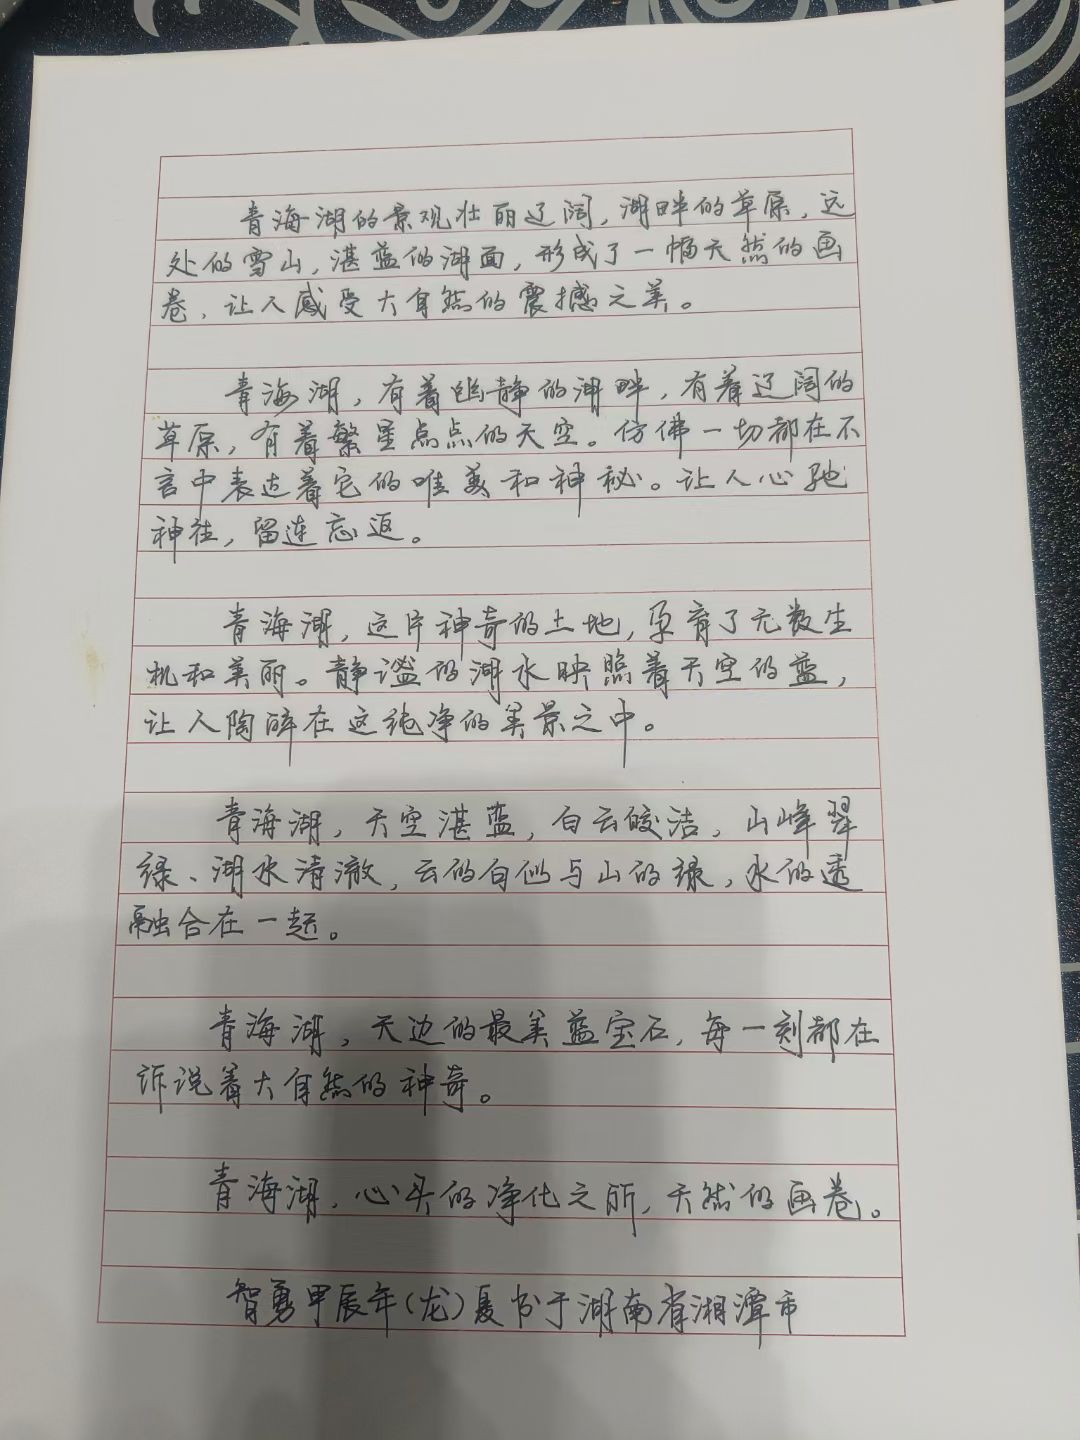 青海湖的景观壮丽辽阔，湖畔的草原，远
处的雪山，湛蓝的湖面，形成了一幅天然的画
卷，让人感受大自然的震撼之美。
青海湖，有着幽静的湖畔，有着辽阔的
草原，有着繁星点点的天空。仿佛一切都在不
言中表达着它的唯美和神秘。让人心驰
神往，留连忘返。
青海湖，这片神奇的土地，孕育了无数生
机和美丽。静谧的湖水映照着天空的蓝，
让人陶醉在这纯净的美景之中。
青海湖，天空湛蓝，白云皎洁，山峰翠
绿、湖水清澈，云的白似与山的绿，水的透
融合在一起。
青海湖，天边的最美蓝宝石，每一刻都在
诉说着大自然的神奇。
青海湖，心头的净化之所，天然的画卷。
智勇甲辰年（龙）夏书于湖南省湘潭市